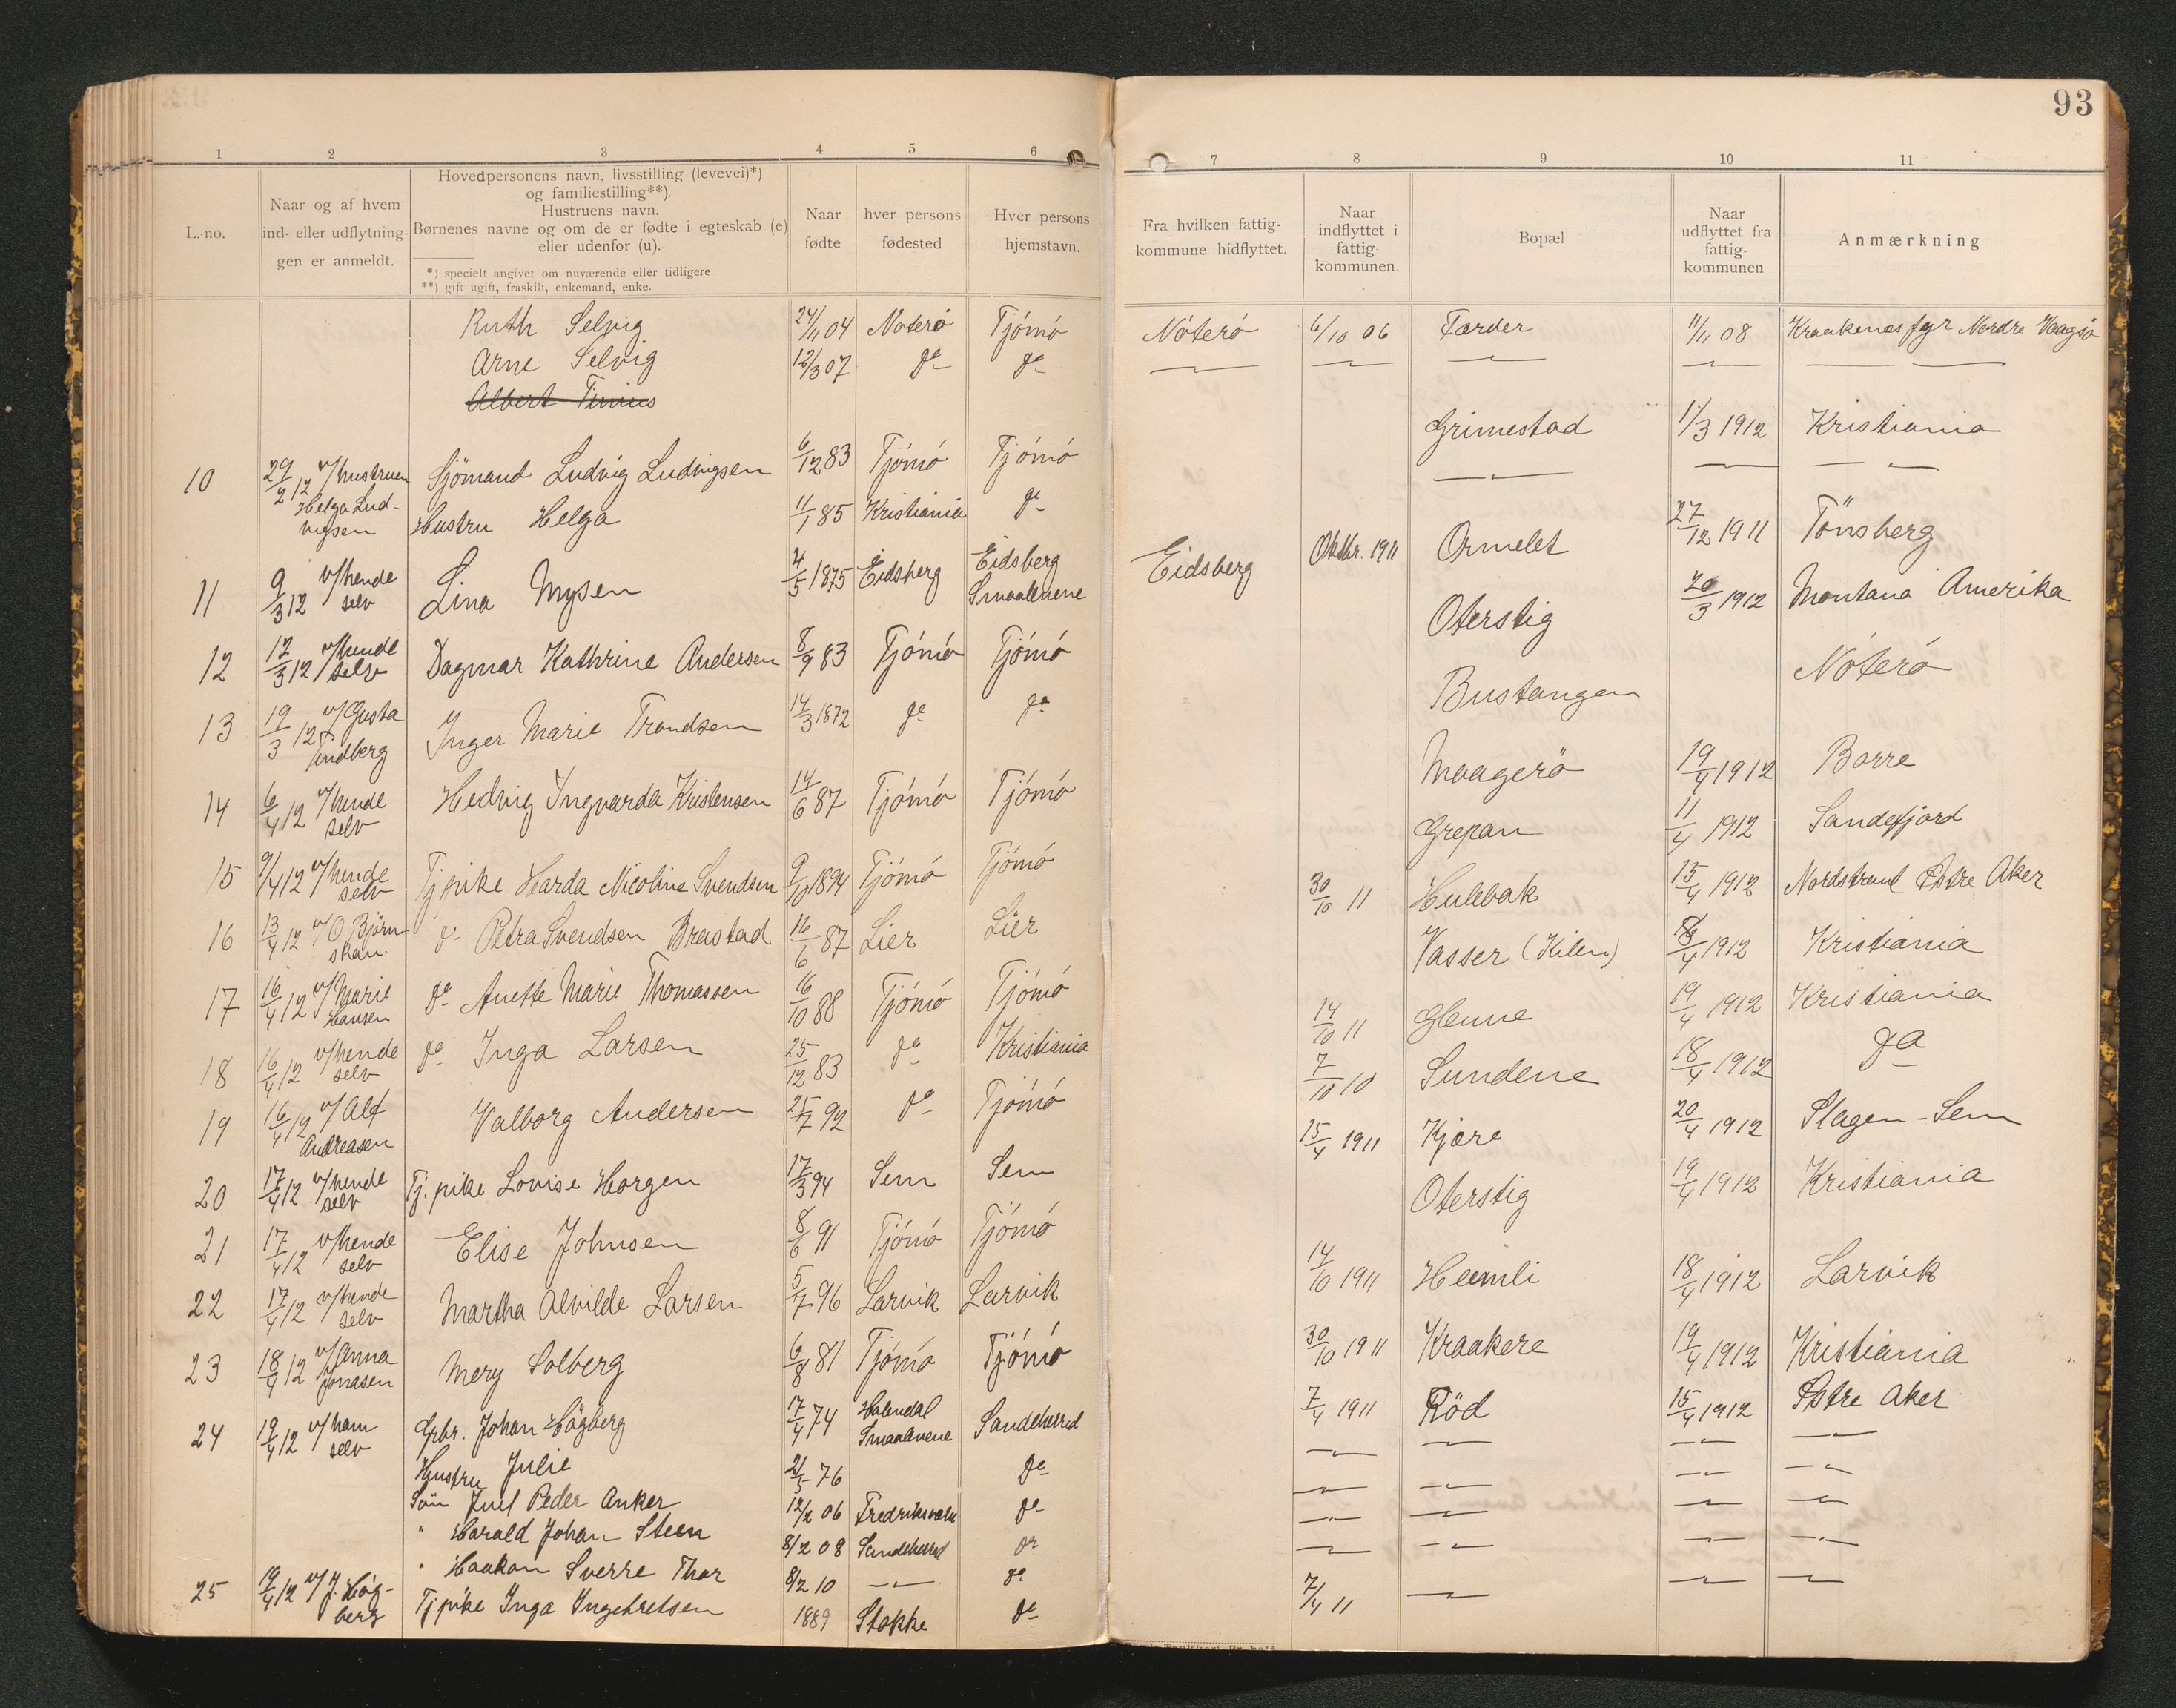 93
1 2 3 4 5 6 7 8 9 10 11
L.-no.
Naar og af hvem
ind- eller udflytning-
gen er anmeldt.
Hovedpersonens navn, livsstilling (levevei)*)
og familiestilling**)
Hustruens navn.
Børnenes navne og om de er fødte i egteskab (e)
eller udenfor (u).
*) specielt angivet om nuværende eller tidligere.
**) gift ugift, fraskilt, enkemand, enke.
Naar
fødte
hver persons
fødested
Hver persons
hjemstavn.
Fra hvilken fattig-
kommune hidflyttet.
Naar
indflyttet i
fattig
kommunen.
Bopæl
Naar
udflyttet fra
fattig-
kommunen
Anmærkning
Ruth Selvig 24/11 04 Nøterø Tjømø Nøterø 6/10 06 Færder 11/11 08 Kraakenes fyr Nordre Vaagsø
Arne Selvig 12/3 07 do do — — — — —
Albert
10 29/2 12 v/ hustruen Sjømand Ludvig Ludvigsen 6/12 83 Tjømø Tjømø Grimestad 1/3 1912 Kristiania
Helga Lud-
vigsen Hustru Helga 11/1 85 Kristiania do — — —
11 9/3 12 v/ hende Lina Mysen 4/5 1875 Eidsberg Eidsberg Eidsberg Oktbr. 1911 Ormelet 27/12 1911 Tønsberg
selv Smaalenene
12 12/3 12 v/ hende Dagmar Kathrine Andersen 8/9 83 Tjømø Tjømø Oterstig 20/3 1912 Montana Amerika
selv
13 19/3 12 v/ Gusta Inger Marie Trondsen 14/3 1872 do do Bustangen Nøterø
Lindberg
14 6/4 12 v/ hende Hedvig Ingvarda Kristensen 14/6 87 Tjømø Tjømø Maagerø 19/4 1912 Borre
selv
15 9/4 12 v/ hende Tj pike Harda Nicoline Svendsen 1894 Tjømø Tjømø Grepan 11/4 1912 Sandefjord
selv
16 13/4 12 v/ O Bjørn- do Petra Svendsen Brastad 16/6 87 Lier Lier 30/10 11 Hulebak 15/4 1912 Nordstrand Østre Aker
skau.
17 16/4 12 v/ Marie do Anette Marie Thomassen 16/10 88 Tjømø Tjømø Vasser (Kilen) 4 1912 Kristiania
Hansen
18 16/4 12 v/ hende do Inga Larsen 25/12 83 do Kristiania 14/10 11 Glenne 19/4 1912 Kristiania
selv
19 16/4 12 v/ Alf Valborg Andersen 25/7 92 do Tjømø 7/10 10 Sundene 18/4 1912 do
Andreasen
20 17/4 12 v/ hende Tj. pike Lovise Horgen 17/3 94 Sem Sem 15/4 1911 Kjære 20/4 1912 Slagen - Sem
selv
21 17/4 12 v/ hende Elise Johnsen 8/6 91 Tjømø Tjømø Oterstig 19/4 1912 Kristiania
selv
22 17/4 12 v/ hende Martha Alvilde Larsen 5/7 96 Larvik Larvik 14/10 1911 Heimli 18/4 1912 Larvik
selv
23 18/4 12 v/ Anna Mery Solberg 6/8 81 Tjømø Tjømø 30/10 1911 Kraakere 19/4 1912 Kristiania
Jonasen
24 19/4 12 v/ ham Grbr. Johan Høgberg 17/4 74 Sandeherred 7/4 1911 Rød 15/4 1912 Østre Aker
selv Smaalenene
Hustru Julie 76 do — — — —
Søn Juel Peder Anker 12/2 06 do — — — —
" Harald Johan Steen 8/2 08 Sandeherred do — — — —
" Haakon Sverre Thor 8/2 10 — do — — — —
25 19/4 12 v/ J. Høg- Tj pike Inga Ingebretsen 1889 Stokke do 7/4 11 — — —
berg